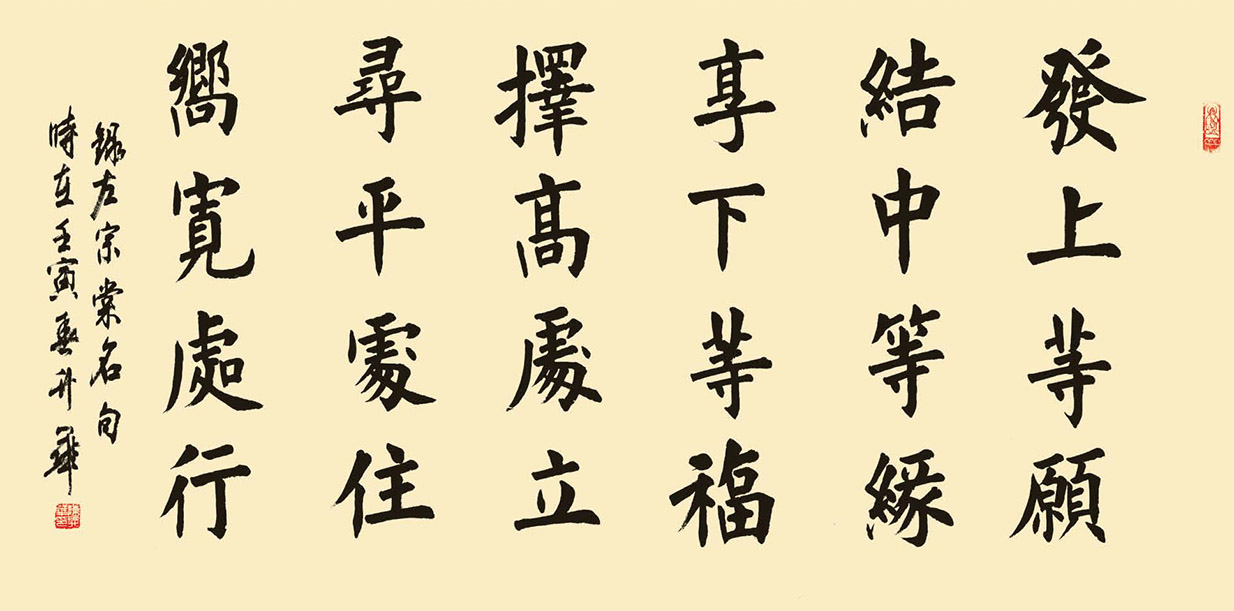 發上等願
結中等緣
享下等福
擇高處立
尋平處住
嚮寬處行
録左宗棠名句
時在壬寅春升華